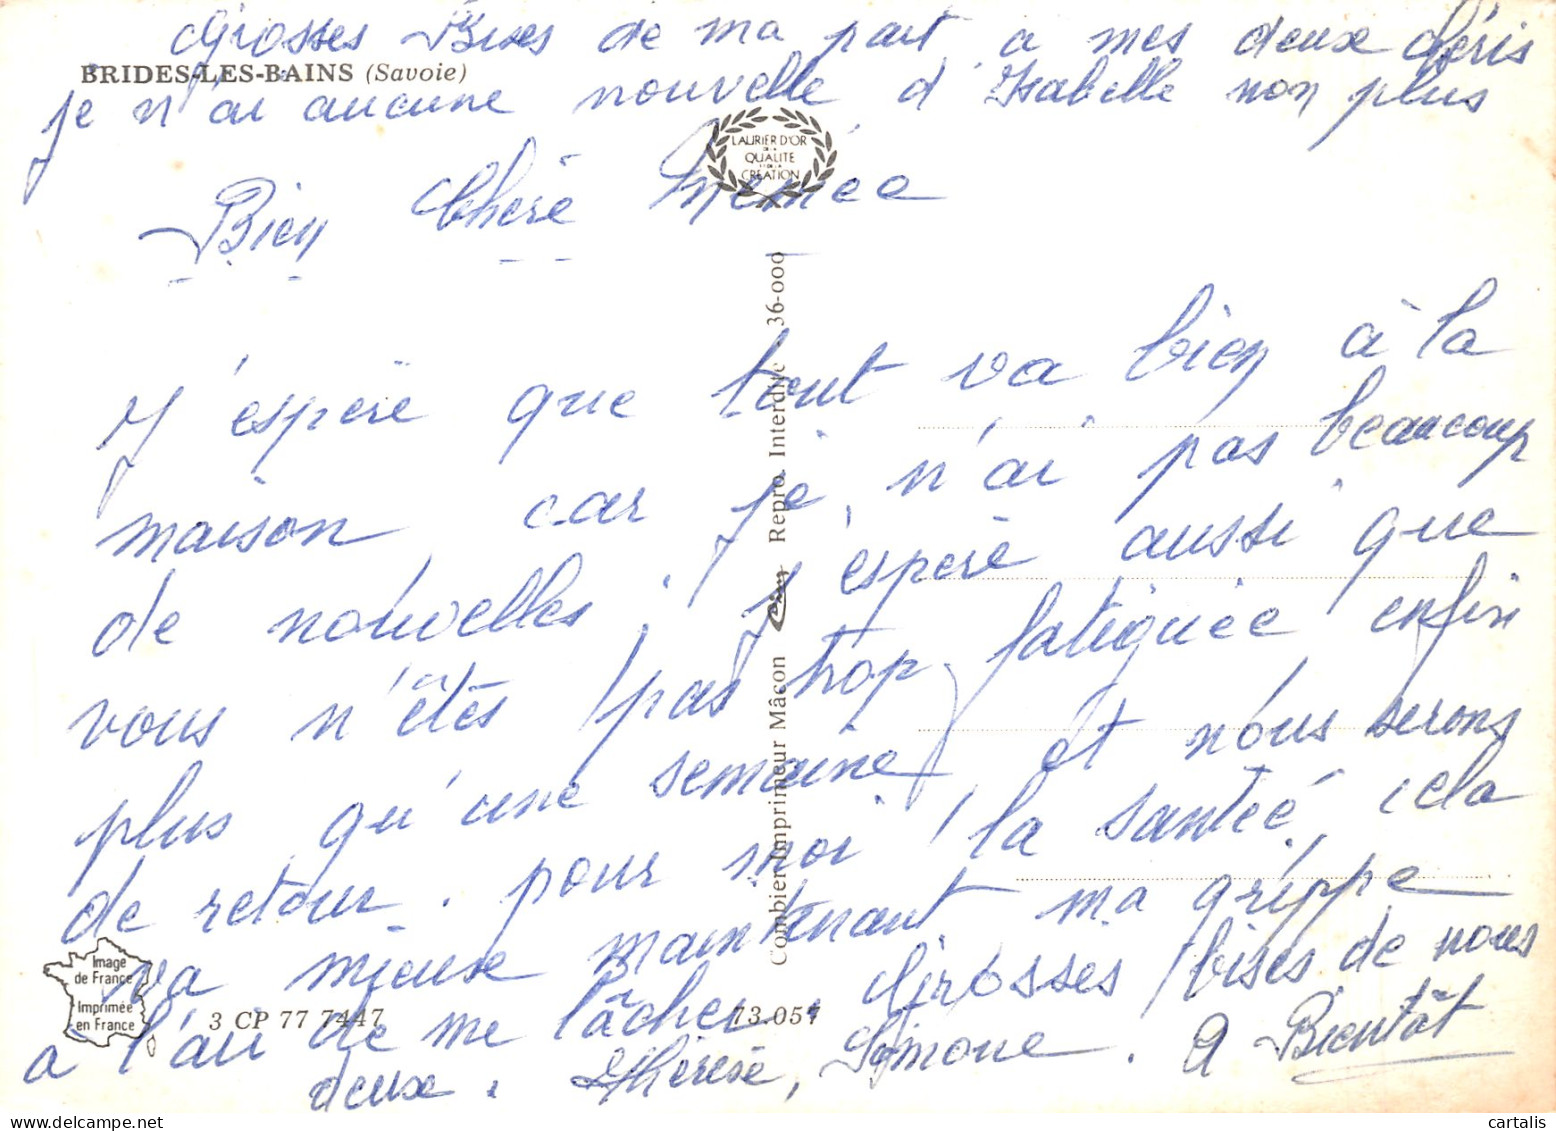 Grosses Bises de ma part a mes deux chéris
BRIDES-LES-BAINS (Savoie)
je n'ai aucune nouvelle d'Isabelle non plus
LAURIER D'OR
DE LA
QUALITE
ET DE LA
CREATION
Bien Chère Mémée
J'espère que tout va bien à la
maison car je n'ai pas beaucoup
de nouvelles ; j'espère aussi que
vous n'êtes pas trop fatiguée enfin
plus qu'une semaine et nous serons
de retour. pour moi la santé, cela
va mieux maintenant ma grippe
a l'air de me lâcher. Grosses bises de nous
deux. Thérèse, Simone. A Bientôt
Combier Imprimeur Mâcon Cim Repro. Interdite 36-000
Image
de France
Imprimée
en France
3 CP 77 7447
73.057
www.delcampe.net
cartalis